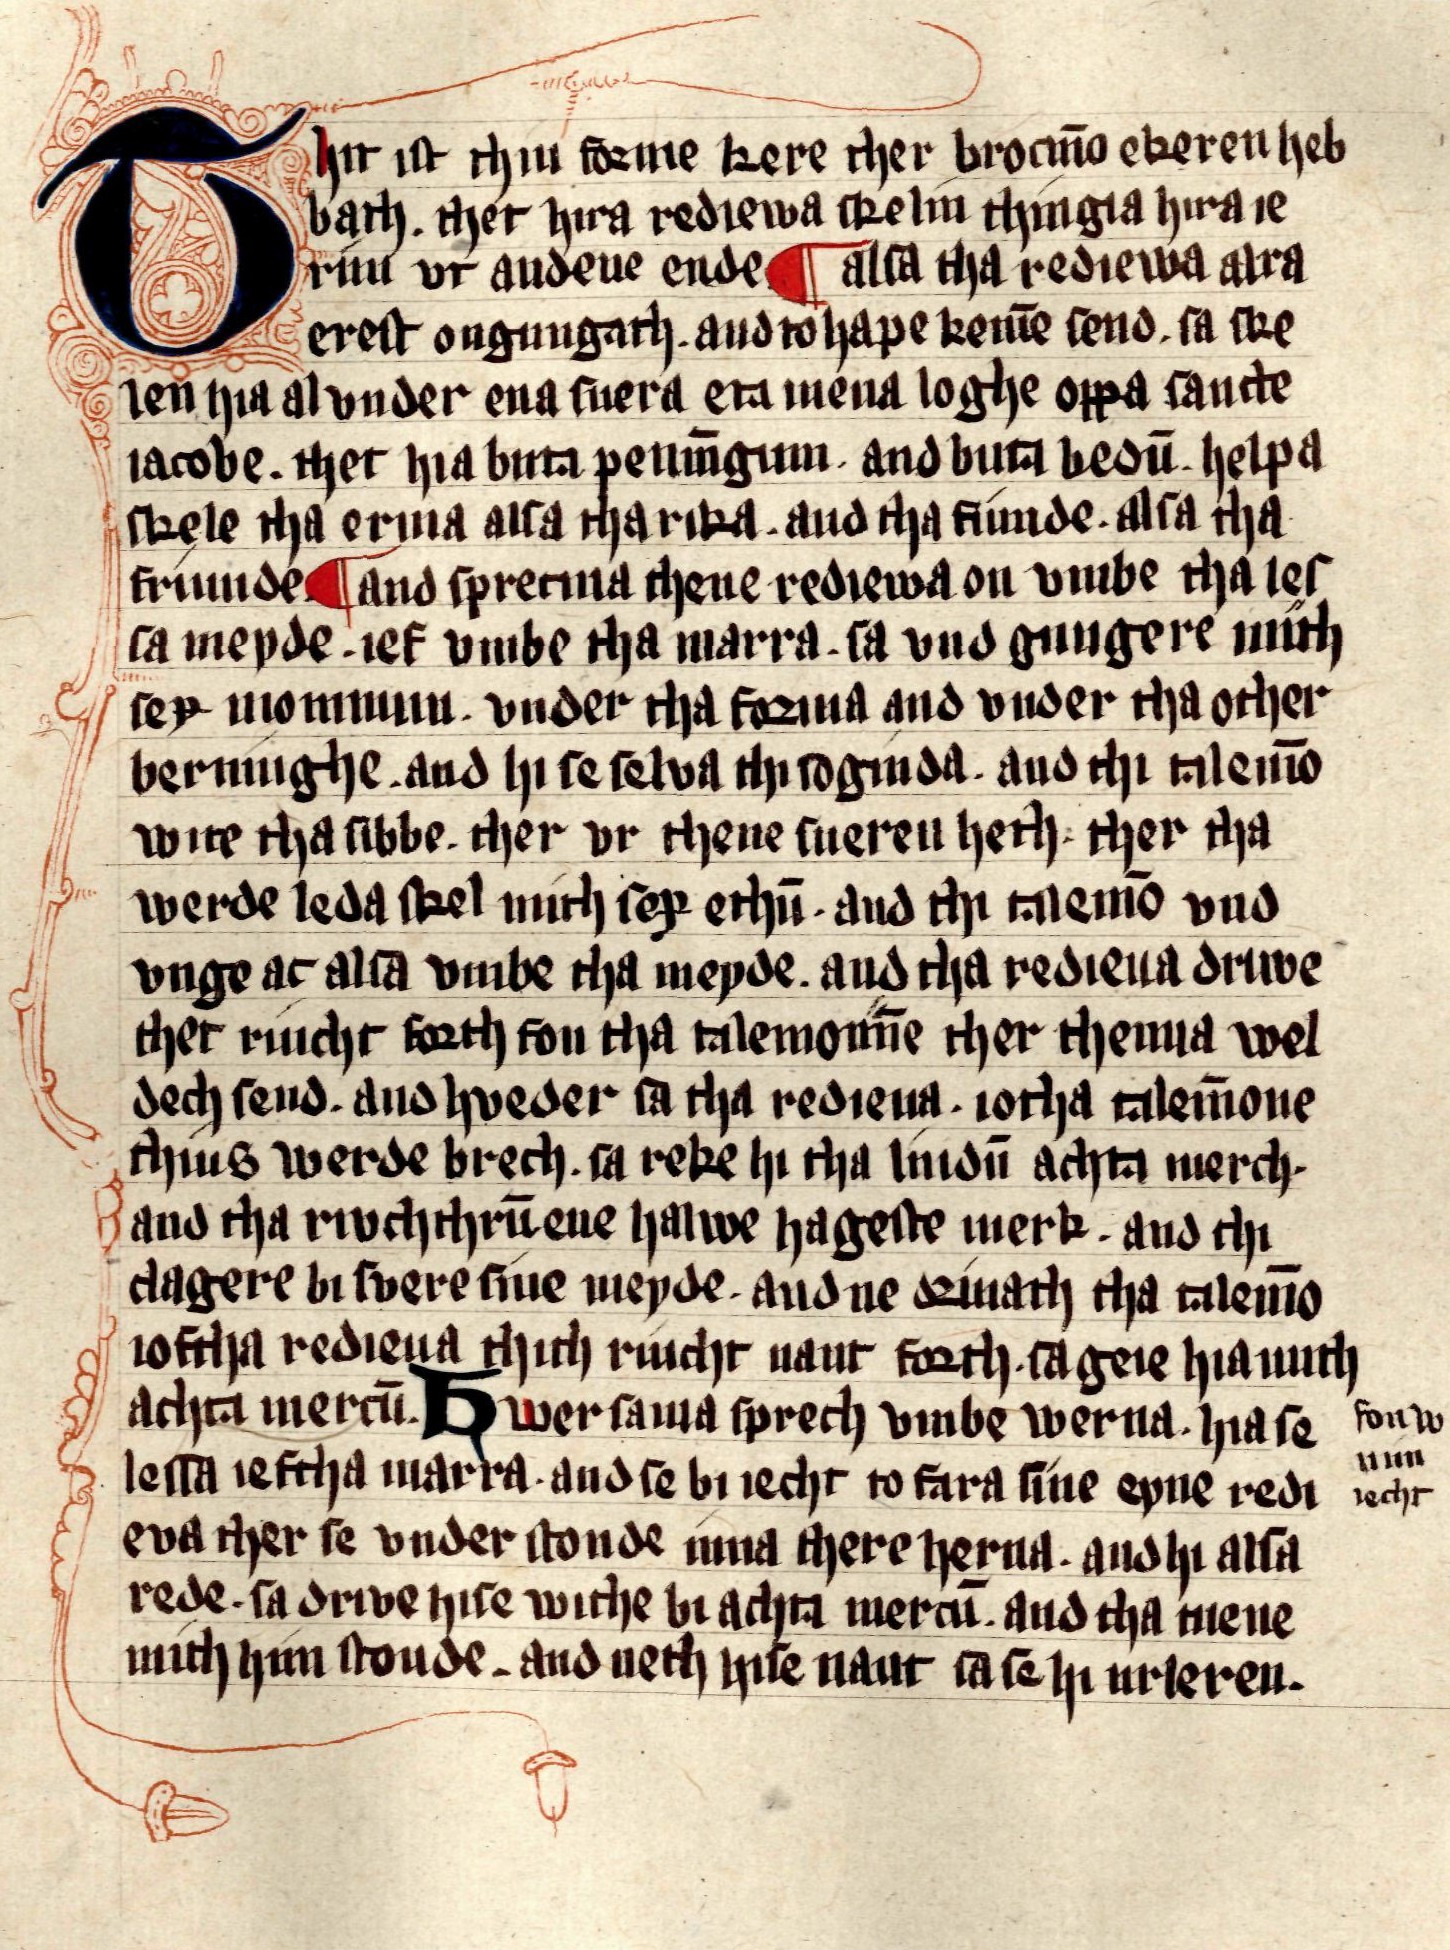 Thit ist thiu forme kere ther brocm̄o ekeren heb
bath. thet hira rediewa skelin thingia hira ie
rim vt and eue ende ¶ alsa tha rediewa alra
erest ongungath. and to hape kem̄e send. sa ske
len hia al vnder ena suera eta mena loghe oppa sancte
iacobe. thet hia buta penn̄igum. and buta bedū. helpa
skele tha erma alsa tha rika. and tha fiunde. alsa tha
friunde ¶ and spretma thene rediewa on vmbe tha les
sa meyde. ief vmbe tha marra. sa vnd gungere mith
sex monnum. vnder tha forma and vnder tha other
berninghe. and hi se selva thi soginda. and thi talem̄o
wite tha sibbe. ther vr thene sueren heth. ther tha
werde leda skel mith sex ethū. and thi talem̄o vnd
vnge ac alsa vmbe tha meyde. and tha redieua driwe
thet riucht forth fon tha talemonn̄e ther thenna wel
dech send. and hveder sa tha redieua. iotha talem̄one
thius werde brech. sa reke hi tha liudū achta merch.
and tha riwchthrū ene halwe hageste merk. and thi
clagere bi svere sine meyde. and ne driuath tha talem̄o
ioftha redieua thith riucht naut forth. sa geie hia mith
achta mercū. Hwersama sprech vmbe werna. hia se
lessa ieftha marra. and se bi iecht to fara sine eyne redi
eva ther se vnder stonde inna there herna. and hi alsa
rede. sa drive hise withe bi achta mercū. and tha mene
mith him stonde. and neth hise naut sa se hi urleren.
fon w
nim
iecht